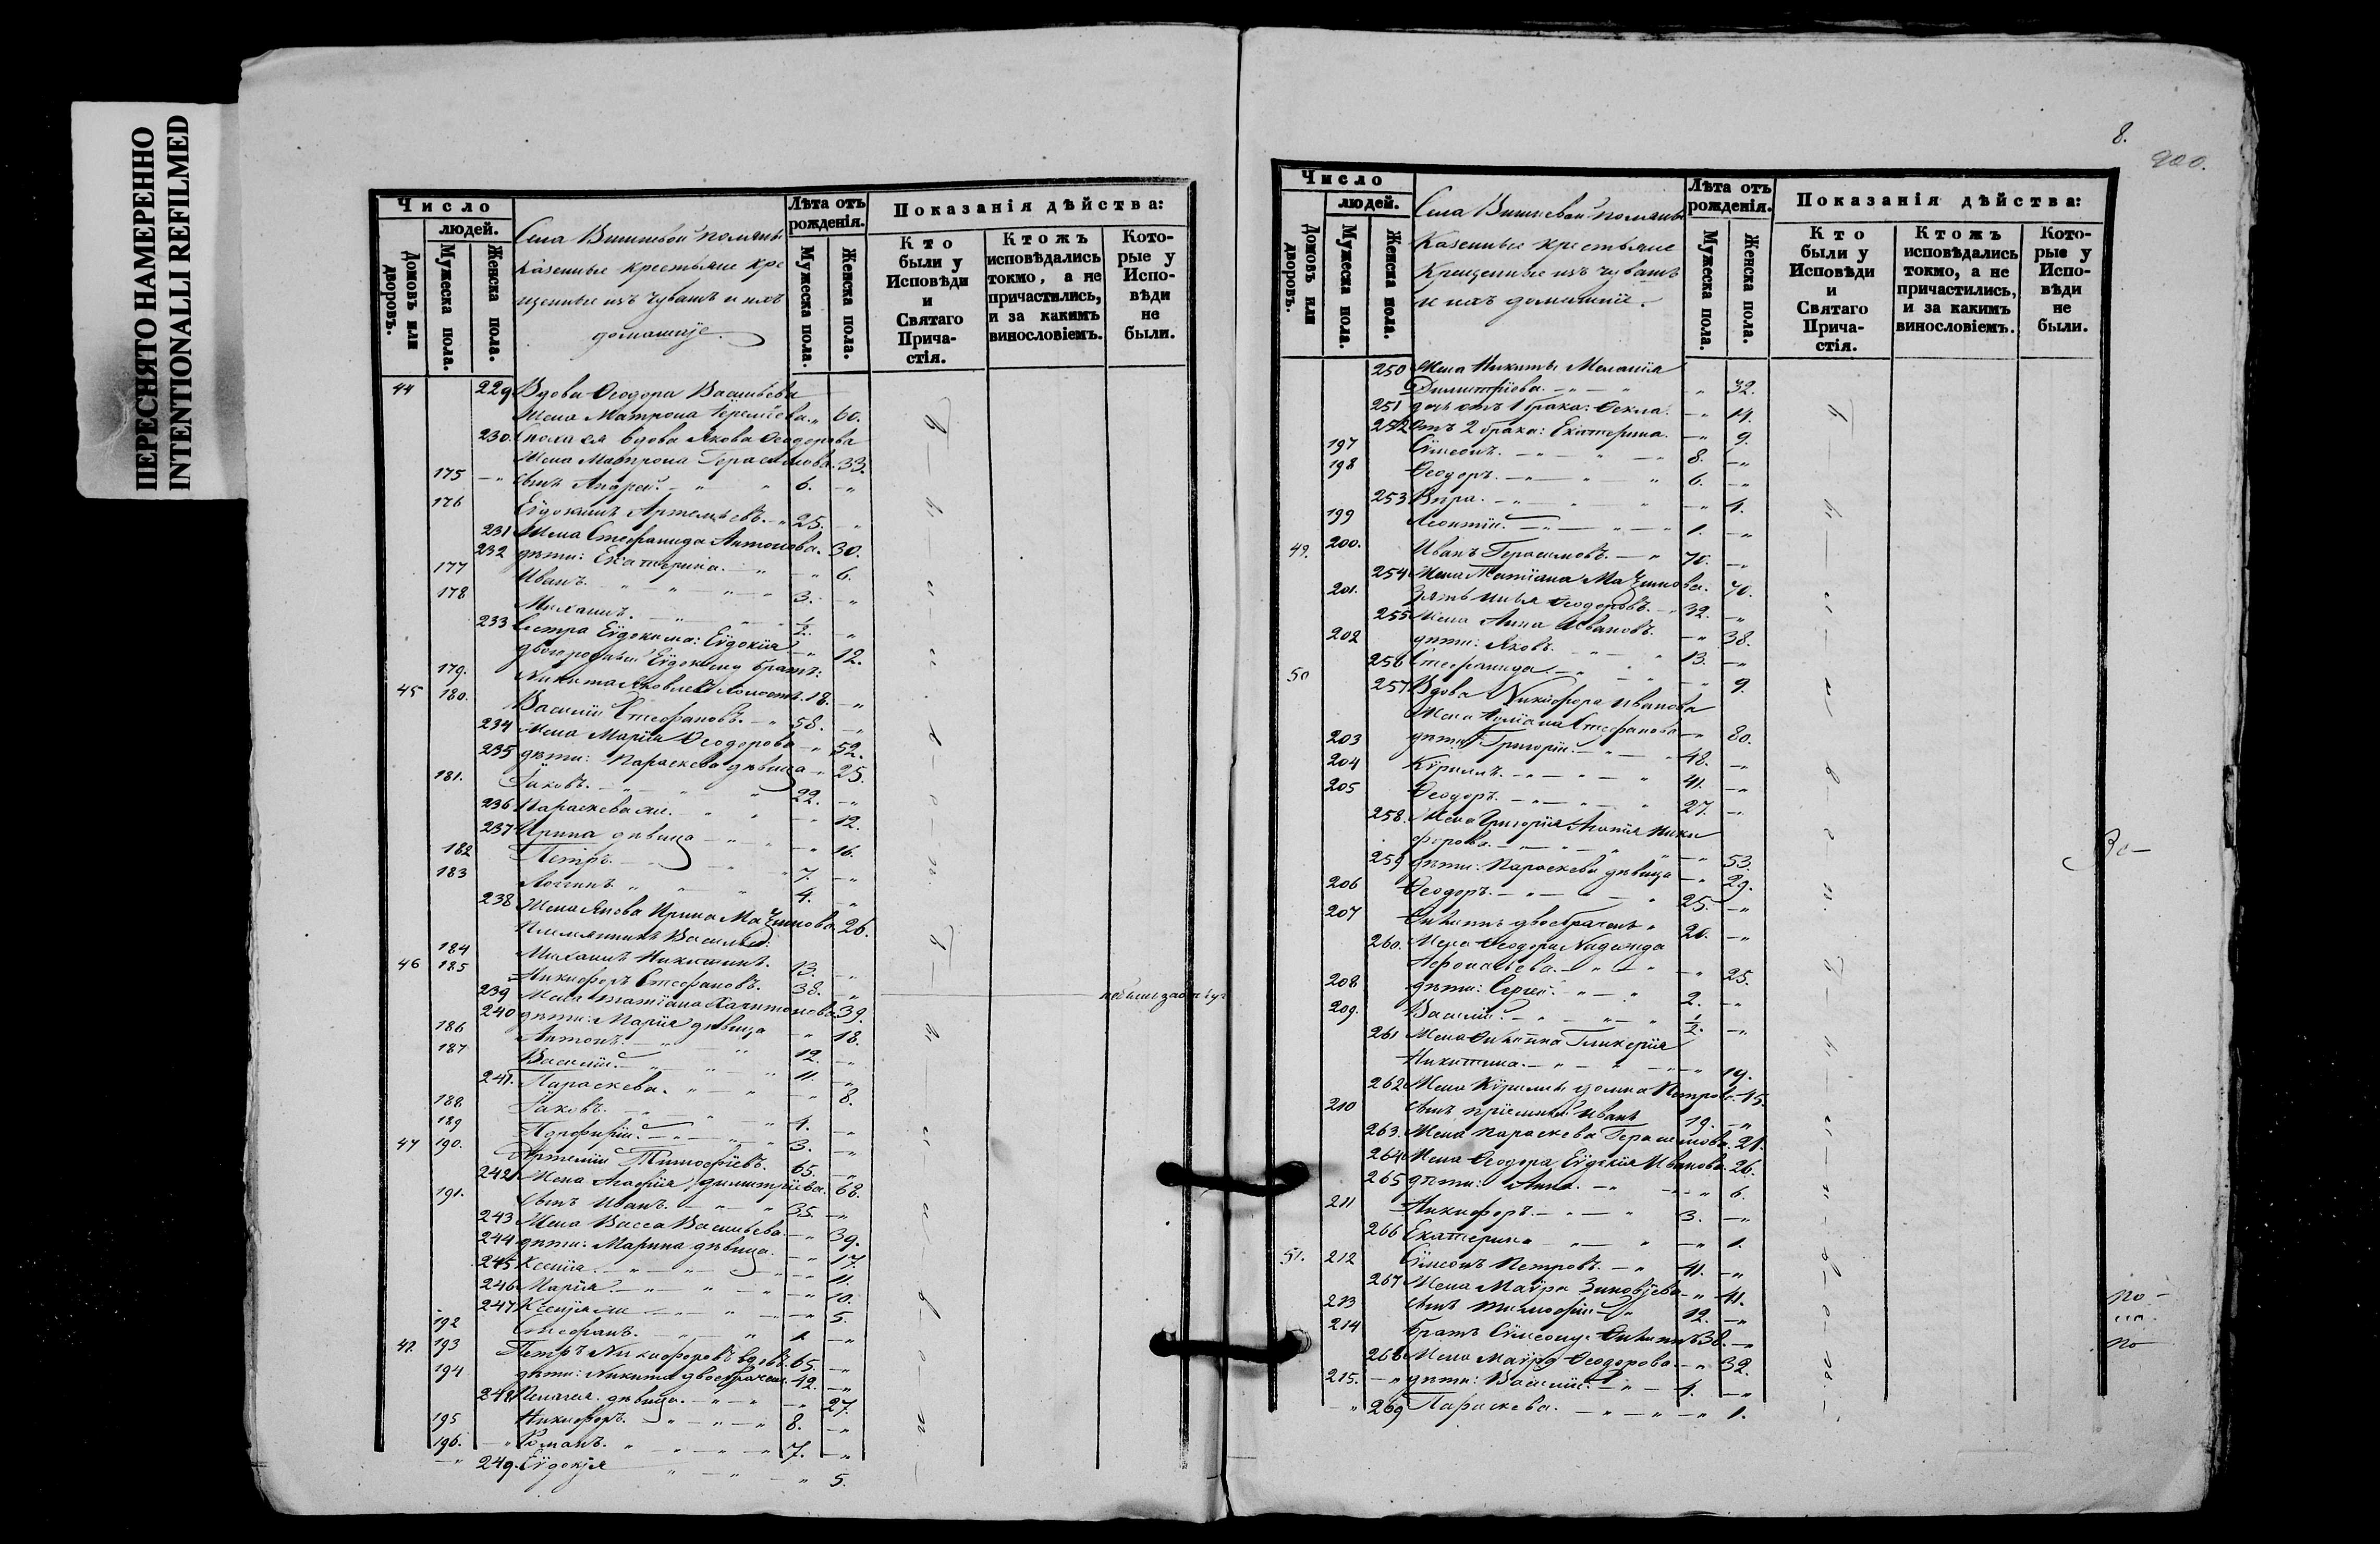 ПЕРЕСНЯТО НАМЕРЕННО
INTENTIONALLI REFILMED
Число
людей.
Домовъ или дворовъ.
Мужеска пола.
Женска пола.
Села Вишневой поляны
Казенные крестьяне кре
щенные изъ Чувашъ и ихъ
домашніе
Лѣта отъ рожденія.
Мужеска пола.
Женска пола.
Показанія дѣйства:
Кто были у Исповѣди и Святаго Прича-стія.
Ктожъ исповѣдались токмо, а не причастились, и за какимъ винословіемъ.
Кото-рые у Испо-вѣди не были.
44 229 Вдова Ѳеодора Васильева
жена Матрона 60.
230. Сноха ея вдова Якова Ѳеодорова
жена Матрона Герасимова. 33.
175 сынъ Андрей 6.
176 Еѵдокимъ Артемьевъ 25.
231 Жена Стефанида Антонова. 30.
232 дѣти: Екатерина. 6.
177 Иванъ. 3.
178 Михаилъ. ½.
233 Сестра Еѵдокима: Еѵдокія 12.
двоюродный Еѵдокиму братъ:
179. Никита Яковлевъ холостъ. 18.
45 180. Василій Стефановъ. 58.
234 Жена Марія Ѳеодорова 52.
235 дѣти: Параскева дѣвица 25.
181. Іаковъ. 22.
236 Параскева мл. 12.
237 Ирина дѣвица 16.
182 Петръ. 7.
183 Логгинъ 4.
238 Жена Якова Ирина Маѯимова. 26.
Племянникъ Василья:
184 Михаилъ Никитинъ. 13.
46 185 Никифоръ Стефановъ. 38.
239 Жена Татіана Харитонова. 39.
240 дѣти: Марія дѣвица 18.
186 Антонъ. 12.
187 Василій. 11.
241. Параскева. 8.
188 Іаковъ. 4.
189 Порфирій. 3.
47 190. Артемій Тимофіевъ. 65.
242 Жена Марія Димитріева. 68.
191. сынъ Иванъ. 35.
243 Жена Васса Васильева 39.
244 дѣти: Марина дѣвица. 17.
245 Ксенія 11.
246 Марія. 10.
247 Ксенія мл 5.
192 Стефанъ. 1.
48. 193 Петръ Никифоровъ вдовъ. 65.
194 дѣти: Никита двоебрачен. 42.
248 Пелагея дѣвица. 27.
195 Никифоръ. 8.
196. Романъ. 7.
249. Еѵдокія 5.
8.
900.
Число
людей.
Домовъ или дворовъ.
Мужеска пола.
Женска пола.
Села Вишневой поляны
Казенные крестьяне
Крещенные изъ чувашъ
и ихъ домашніе.
Лѣта отъ рожденія.
Мужеска пола.
Женска пола.
Показанія дѣйства:
Кто были у Исповѣди и Святаго Прича-стія.
Ктожъ исповѣдались токмо, а не причастились, и за какимъ винословіемъ.
Кото-рые у Испо-вѣди не были.
250 Жена Никиты Меланія
Димитріева. 32.
251 дочь отъ 1 брака: Ѳекла. 14.
252 Отъ 2 брака: Екатерина. 9.
197 Сѵмеонъ. 8.
198 Ѳеодоръ. 6.
253 Вѣра. 4.
199 Леонтій. 1.
49. 200. Иванъ Герасимовъ. 70.
254 Жена Татіана Маѯимова. 70.
201. Зять Илья Ѳеодоровъ. 32.
255 Жена Анна Иванов. 38.
202 дѣти: Яковъ. 13.
256 Стефанида 9.
50 257 Вдова Никифора Иванова
Жена Стефанова 80.
203 дѣти: Григорій. 48.
204 Кѵриллъ. 41.
205 Ѳеодоръ. 27.
258. Жена Григорія Ники
форова. 53.
259 дѣти: Параскева дѣвица 29.
206 Ѳеодоръ. 25.
207 Филиппъ двоебрачен. 20.
260. Жена Ѳеодора Надежда
25.
208 дѣти: Сергей. 2.
209. Василій. ½.
261 Жена Филиппа Гликерія
Никитина. 19.
262 Жена Кѵрилла Домна Петрова 45.
210 сынъ пріемный Иванъ 19.
263. Жена Параскева Герасимова. 21.
264 Жена Ѳеодора Еѵдокія Иванова. 26.
265 дѣти: Анна. 6.
211 Никифоръ. 3.
266 Екатерина 1.
51. 212 Сѵмеонъ Петровъ. 41.
267 Жена Маѵра Зиновьева 41.
213 сынъ Тимофій 12.
214 братъ Сѵмеону: Филиппъ 38.
268 Жена Маѵра Ѳеодорова 32.
215. дѣти: Василій. 4.
269 Параскева. 1.